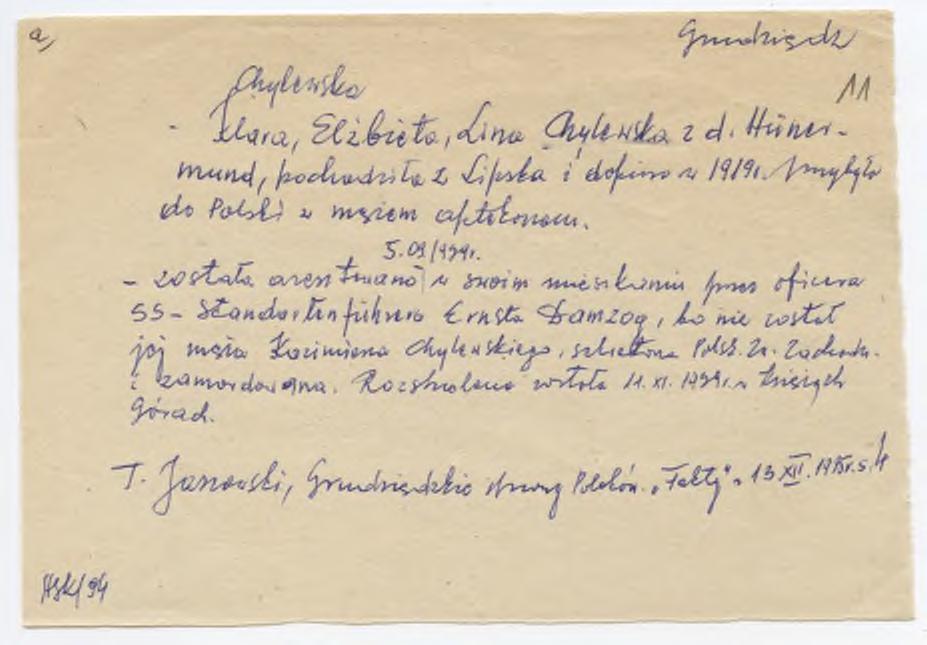 a)
Grudziądz
11
Chylewska
- Klara, Elżbieta, Lina Chylewska z d. Hüner-
mund, pochodziła z Lipska i dopiero w 1919r. przybyła
do Polski z mężem aptekarzem.
5.09.1939r.
- została aresztowana w swoim mieszkaniu przez oficera
SS-Standartenführera Ernsta Damzog, bo nie zastał
jej męża Kazimierza Chylewskiego, członka Polsk. Zw. Zachodn.
i zamordowana. Rozstrzelana została 11.XI.1939r. w Księżych
Górach.
T. Jaszowski, Grudziądzkie Polaków. "Fakty" 13 XII. s.
HSK/94